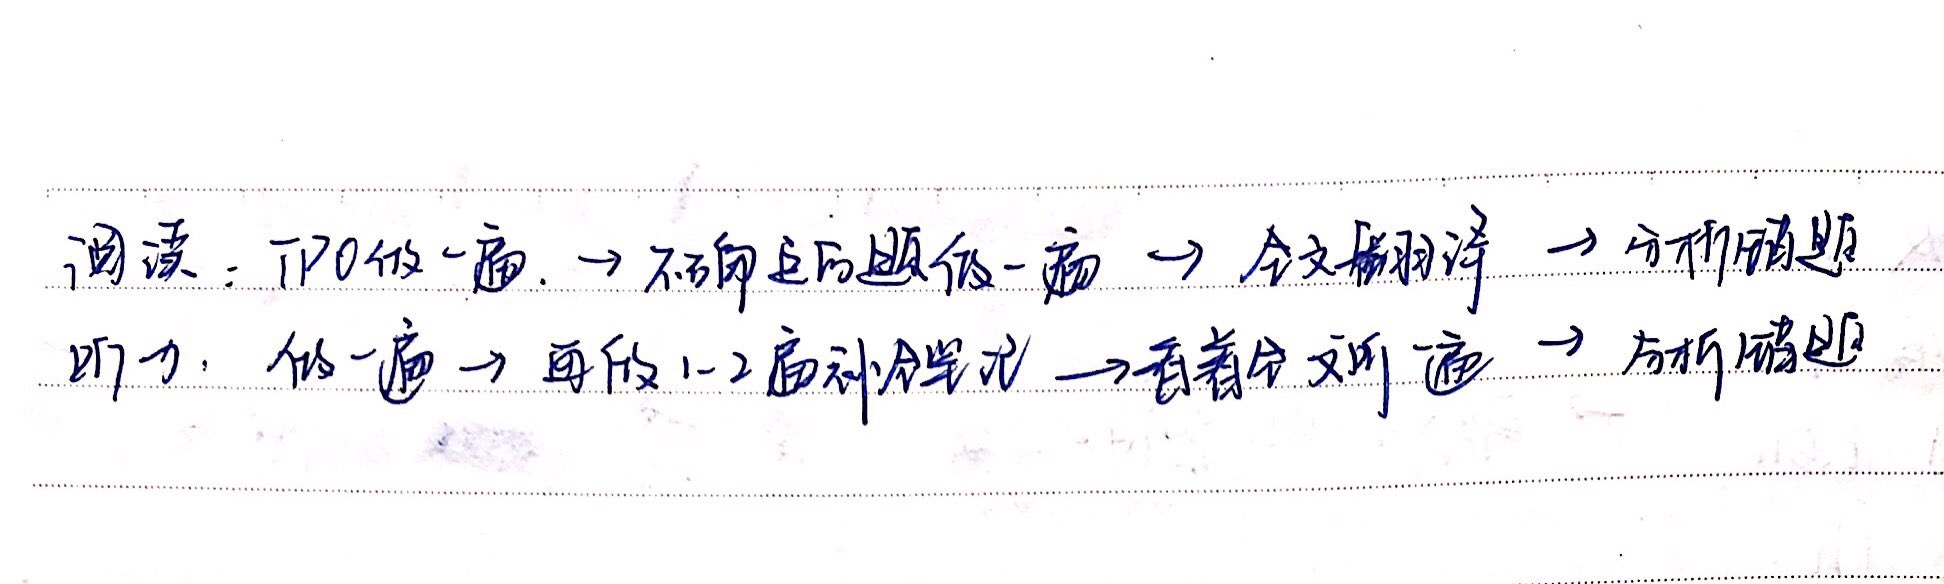 阅读：TPO做一遍.→不确定的题做一遍→全文翻译→分析错题
听力：做一遍→再做1-2遍补全笔记→看着全文听一遍→分析错题